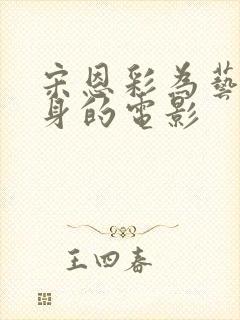 宋恩彩为藝
身的電影
王四春